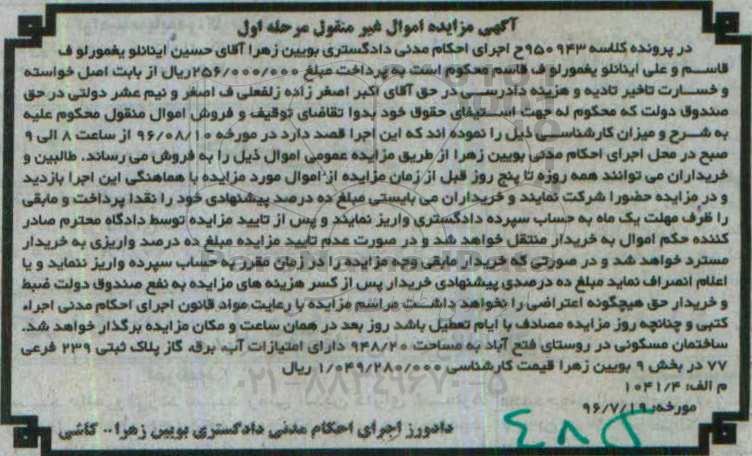 آگهی مزایده اموال غیر منقول مرحله اول
در پرونده کلاسه ۹۵۰۹۴۳ح اجرای احکام مدنی دادگستری بویین زهرا آقای حسین اینانلو یغمورلو ف
قاسم و علی اینانلو یغمورلو ف قاسم محکوم است به پرداخت مبلغ ۲۵۶/۰۰۰/۰۰۰ریال از بابت اصل خواسته
و خسارت تاخیر تادیه و هزینه دادرسی در حق آقای اکبر اصغر زاده زلفعلی ف اصغر و نیم عشر دولتی در حق
صندوق دولت که محکوم له جهت استیفای حقوق خود بدوا تقاضای توقیف و فروش اموال منقول محکوم علیه
به شرح و میزان کارشناسی ذیل را نموده اند که این اجرا قصد دارد در مورخه ۹۶/۰۸/۱۰ از ساعت ۸ الی ۹
صبح در محل اجرای احکام مدنی بویین زهرا از طریق مزایده عمومی اموال ذیل را به فروش می رساند. طالبین و
خریداران می توانند همه روزه تا پنج روز قبل از زمان مزایده از اموال مورد مزایده با هماهنگی این اجرا بازدید
و در مزایده حضورا شرکت نمایند و خریداران می بایستی مبلغ ده درصد پیشنهادی خود را نقدا پرداخت و مابقی
را ظرف مهلت یک ماه به حساب سپرده دادگستری واریز نمایند و پس از تایید مزایده توسط دادگاه محترم صادر
کننده حکم اموال به خریدار منتقل خواهد شد و در صورت عدم تایید مزایده مبلغ ده درصد واریزی به خریدار
مسترد خواهد شد و در صورتی که خریدار مابقی وجه مزایده را در زمان مقرر به حساب سپرده واریز ننماید و یا
اعلام انصراف نماید مبلغ ده درصدی پیشنهادی خریدار پس از کسر هزینه های مزایده به نفع صندوق دولت ضبط
و خریدار حق هیچگونه اعتراضی را نخواهد داشت مراسم مزایده با رعایت مواد قانون اجرای احکام مدنی اجراء
کتبی و چنانچه روز مزایده مصادف با ایام تعطیل باشد روز بعد در همان ساعت و مکان مزایده برگذار خواهد شد.
ساختمان مسکونی در روستای فتح آباد به مساحت ۹۴۸/۲۰ دارای امتیازات آب، برق، گاز پلاک ثبتی ۲۳۹ فرعی
۷۷ در بخش ۹ بویین زهرا قیمت کارشناسی ۱/۰۴۹/۲۸۰/۰۰۰ ریال
م الف: ۱۰۴۱/۴
مورخه: ۹۶/۷/۱۹
دادورز اجرای احکام مدنی دادگستری بویین زهرا.. کاشی
۰۲۱-۸۸۳۴۹۶۷۰-۵